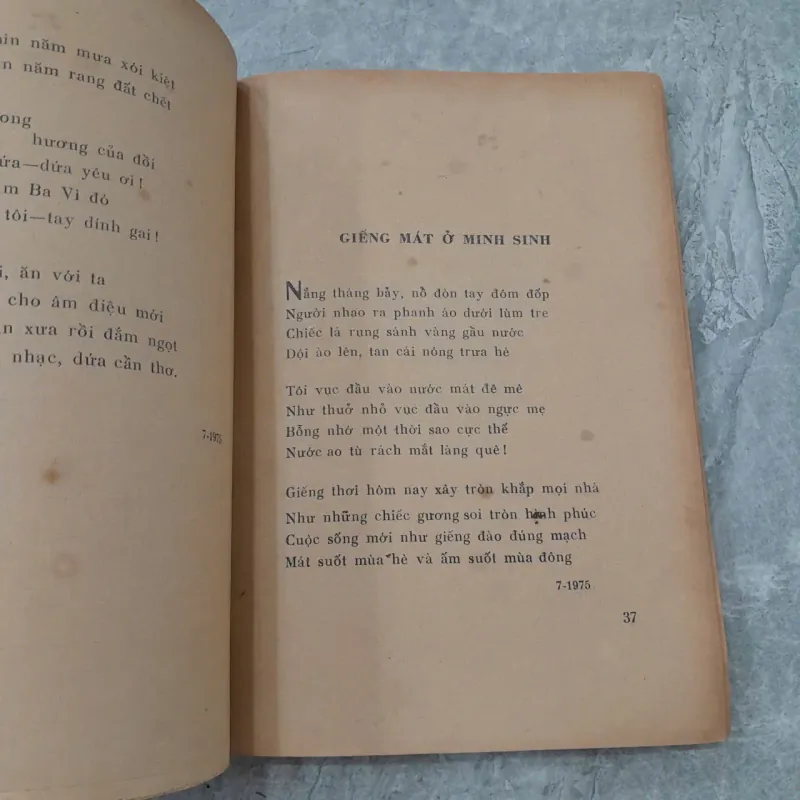 năm mưa xói kiệt
năm rang đất chết
hương của đồi
dứa yêu ơi!
Ba Vì đỏ
tôi—tay dính gai!
ăn với ta
cho âm điệu mới
xưa rồi đắm ngọt
nhạc, dứa cần thơ.
7-1975
GIẾNG MÁT Ở MINH SINH
Nắng tháng bảy, nổ đòn tay đóm đốp
Người nhao ra phanh áo dưới lùm tre
Chiếc lá rụng sánh vàng gầu nước
Dội ào lên, tan cái nóng trưa hè
Tôi vục đầu vào nước mát đê mê
Như thuở nhỏ vục đầu vào ngực mẹ
Bỗng nhớ một thời sao cực thế
Nước ao tù rách mắt làng quê!
Giếng thơi hôm nay xây tròn khắp mọi nhà
Như những chiếc gương soi tròn hạnh phúc
Cuộc sống mới như giếng đào đúng mạch
Mát suốt mùa hè và ấm suốt mùa đông
7-1975
37